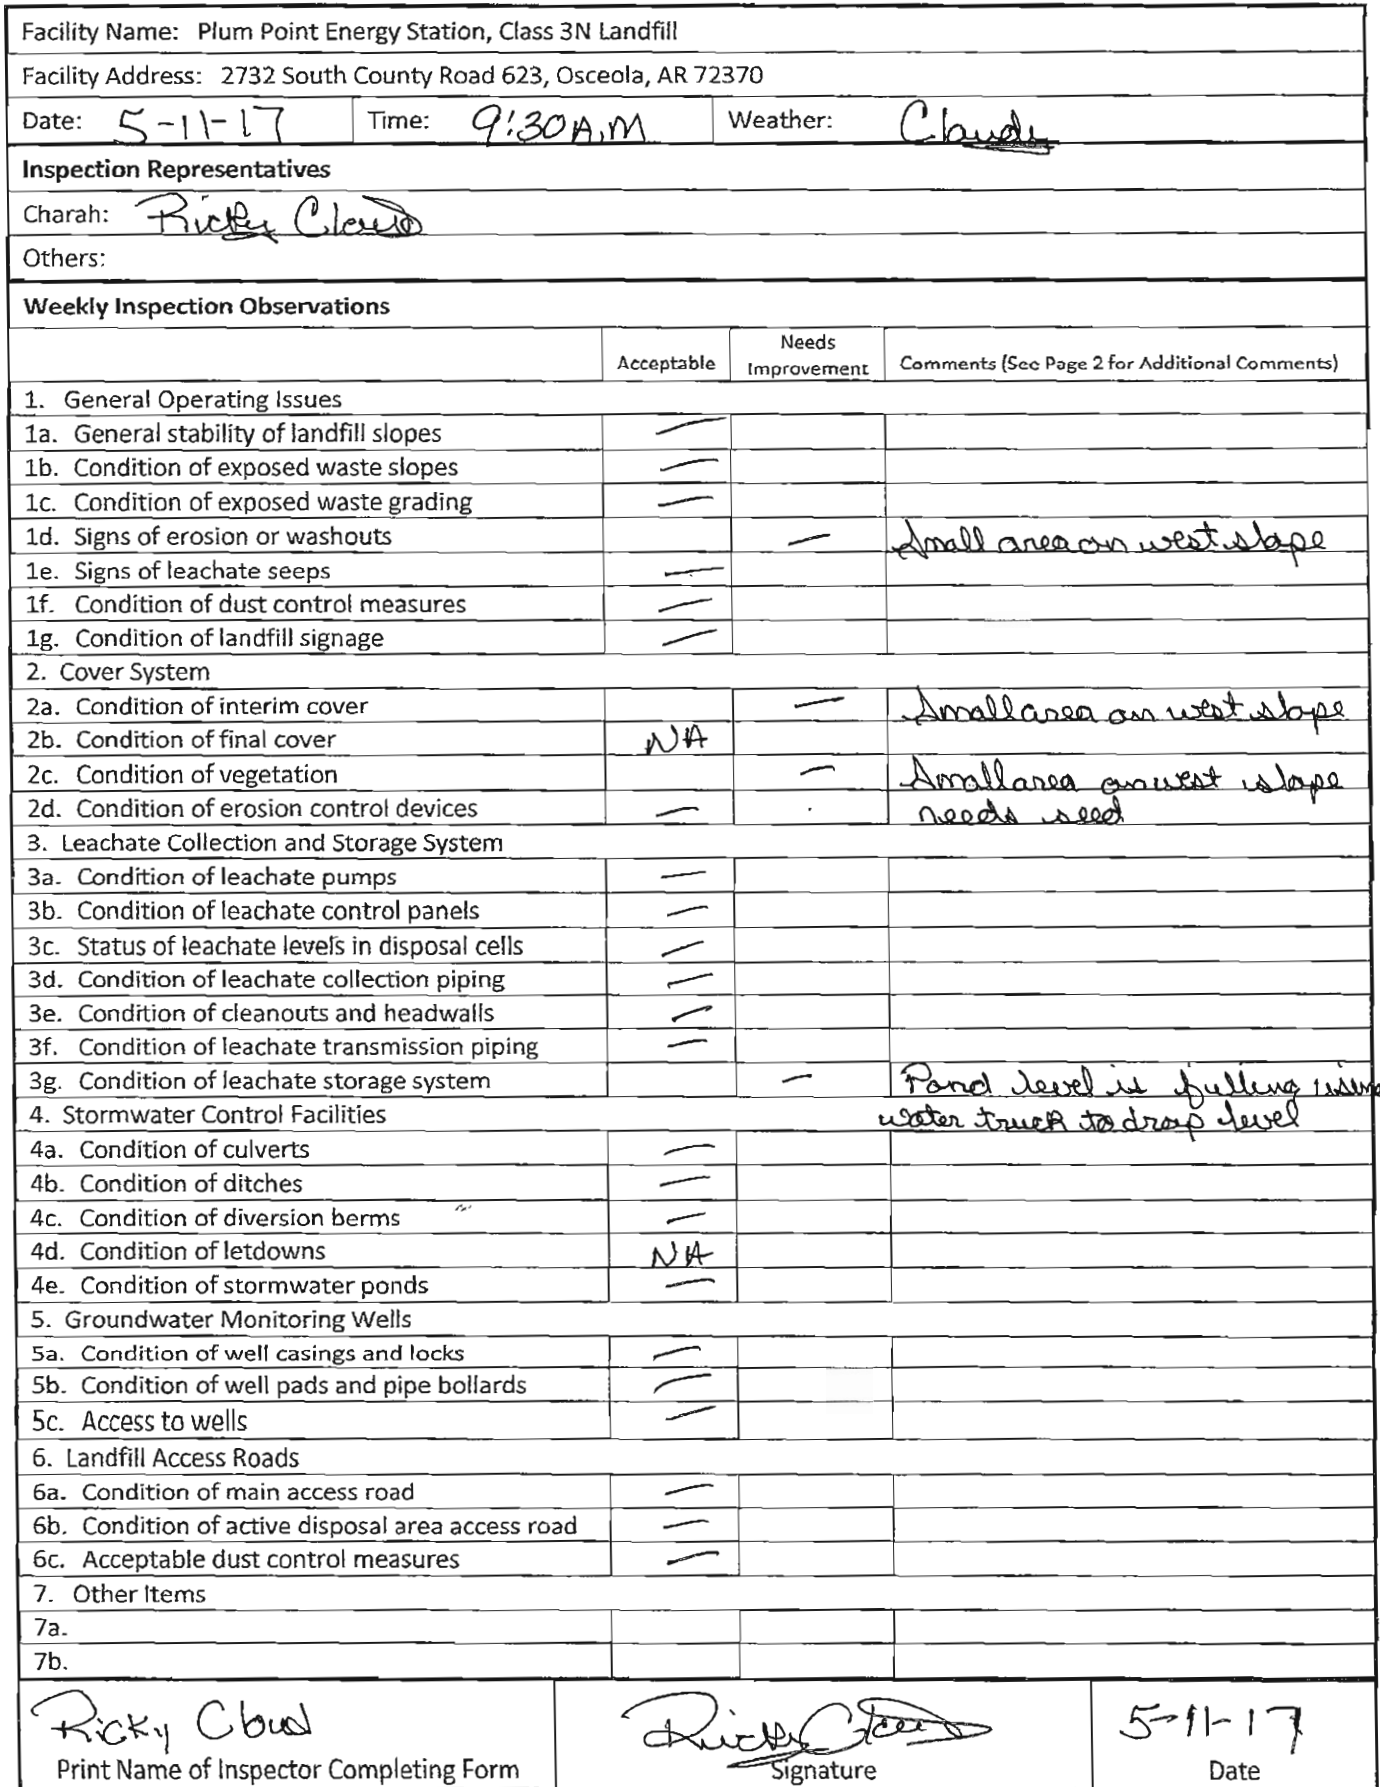 Facility Name: Plum Point Energy Station, Class 3N Landfill
Facility Address: 2732 South County Road 623, Osceola, AR 72370
Date: 5-11-17 Time: 9:30 A.M Weather: Cloudy
Inspection Representatives
Charah: Ricky Cloud
Others:
Weekly Inspection Observations
Acceptable Needs Improvement Comments (See Page 2 for Additional Comments)
1. General Operating Issues
1a. General stability of landfill slopes —
1b. Condition of exposed waste slopes —
1c. Condition of exposed waste grading —
1d. Signs of erosion or washouts — Small area on west slope
1e. Signs of leachate seeps —
1f. Condition of dust control measures —
1g. Condition of landfill signage —
2. Cover System
2a. Condition of interim cover — Small area on west slope
2b. Condition of final cover NA
2c. Condition of vegetation — Small area on west slope
2d. Condition of erosion control devices — needs seed
3. Leachate Collection and Storage System
3a. Condition of leachate pumps —
3b. Condition of leachate control panels —
3c. Status of leachate levels in disposal cells —
3d. Condition of leachate collection piping —
3e. Condition of cleanouts and headwalls —
3f. Condition of leachate transmission piping —
3g. Condition of leachate storage system — Pond level is using
4. Stormwater Control Facilities water truck to drop level
4a. Condition of culverts —
4b. Condition of ditches —
4c. Condition of diversion berms —
4d. Condition of letdowns NA
4e. Condition of stormwater ponds —
5. Groundwater Monitoring Wells
5a. Condition of well casings and locks —
5b. Condition of well pads and pipe bollards —
5c. Access to wells —
6. Landfill Access Roads
6a. Condition of main access road —
6b. Condition of active disposal area access road —
6c. Acceptable dust control measures —
7. Other Items
7a.
7b.
Ricky Cloud Ricky Cloud 5-11-17
Print Name of Inspector Completing Form Signature Date